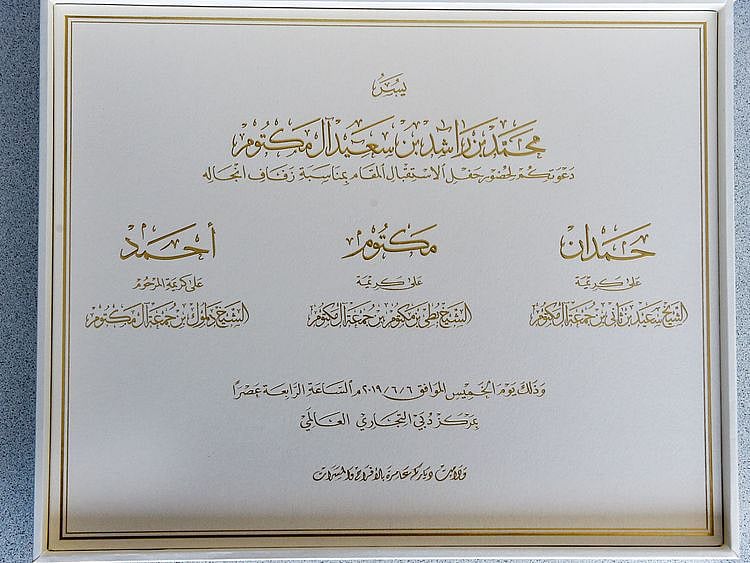 يسر
محمد بن راشد بن سعيد آل مكتوم
دعوتكم لحضور حفل الاستقبال المقام بمناسبة زفاف أنجاله
حمدان مكتوم أحمد
على كريمة على كريمة على كريمة المرحوم
الشيخ سعيد بن ثاني بن جمعة آل مكتوم الشيخ بطي بن مكتوم بن جمعة آل مكتوم الشيخ دلموك بن جمعة آل مكتوم
وذلك يوم الخميس الموافق ٢٠١٩/٦/٦م الساعة الرابعة عصراً
بمركز دبي التجاري العالمي
ولازالت دياركم عامرة بالأفراح والمسرات